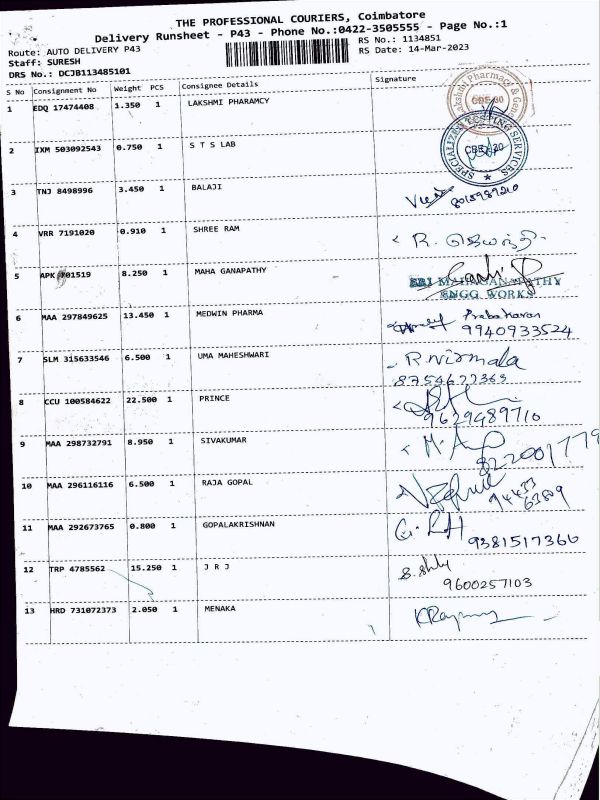 THE PROFESSIONAL COURIERS, Coimbatore
Delivery Runsheet - P43 - Phone No.:0422-3505555 - Page No.:1
Route: AUTO DELIVERY P43
RS No.: 1134851
Staff: SURESH
RS Date: 14-Mar-2023
DRS No.: DCJB113485101
S No Consignment No Weight PCS Consignee Details Signature
1 EDQ 17474408 1.350 1 LAKSHMI PHARAMCY
Lakshmi Pharmacy & Gen
2 IXM 503092543 0.750 1 S T S LAB
SPECIALIZED TESTING SERVICES
3 TNJ 8498996 3.450 1 BALAJI
4 VRR 7191020 0.910 1 SHREE RAM
R.
5 APK 01519 8.250 1 MAHA GANAPATHY
SRI MAHAGANAPATHY
ENGG WORKS
6 MAA 297849625 13.450 1 MEDWIN PHARMA
Prabakaran
9940933524
7 SLM 315633546 6.500 1 UMA MAHESHWARI
R.Nirmala
8754677369
8 CCU 100584622 22.500 1 PRINCE
9629489710
9 MAA 298732791 8.950 1 SIVAKUMAR
822001779
10 MAA 296116116 6.500 1 RAJA GOPAL
94433
63809
11 MAA 292673765 0.800 1 GOPALAKRISHNAN
9381517366
12 TRP 4785562 15.250 1 J R J
9600257103
13 HRD 731072373 2.050 1 MENAKA